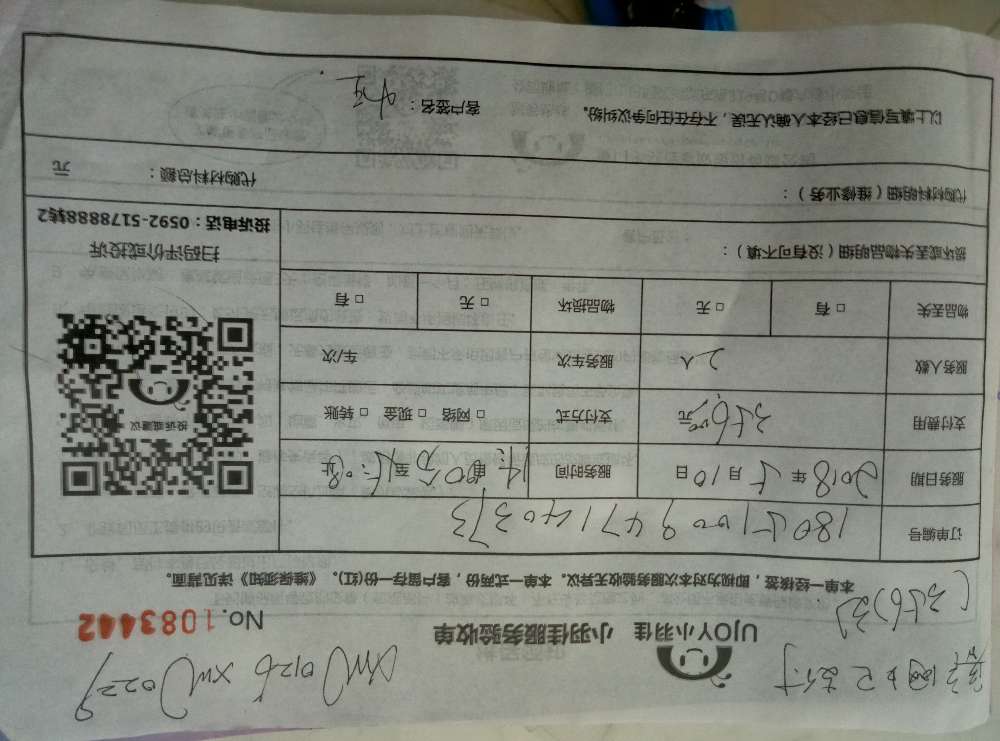 客户网上已支付
xm0126 xm0229
(356元)
UJOY小羽佳 小羽佳服务验收单 No.1083442
本单一经核签,即视为对本次服务验收无异议。本单一式两份,客户留存一份(红)。《维保须知》详见背面。
订单编号
服务日期 2018年5月10日 服务时间
支付费用 356元 支付方式 □ 网络 □ 现金 □ 转账
服务人数 2人 服务车次 车/次
物品丢失 □ 有 □ 无 物品损坏 □ 无 □ 有
投诉或建议
扫码评价或投诉
投诉电话:0592-5178888转2
损坏或丢失物品明细(没有可不填):
代购材料明细(维修业务): 代购材料总额: 元
以上填写信息已经本人确认无误,不存在任何争议纠纷。 客户签名: